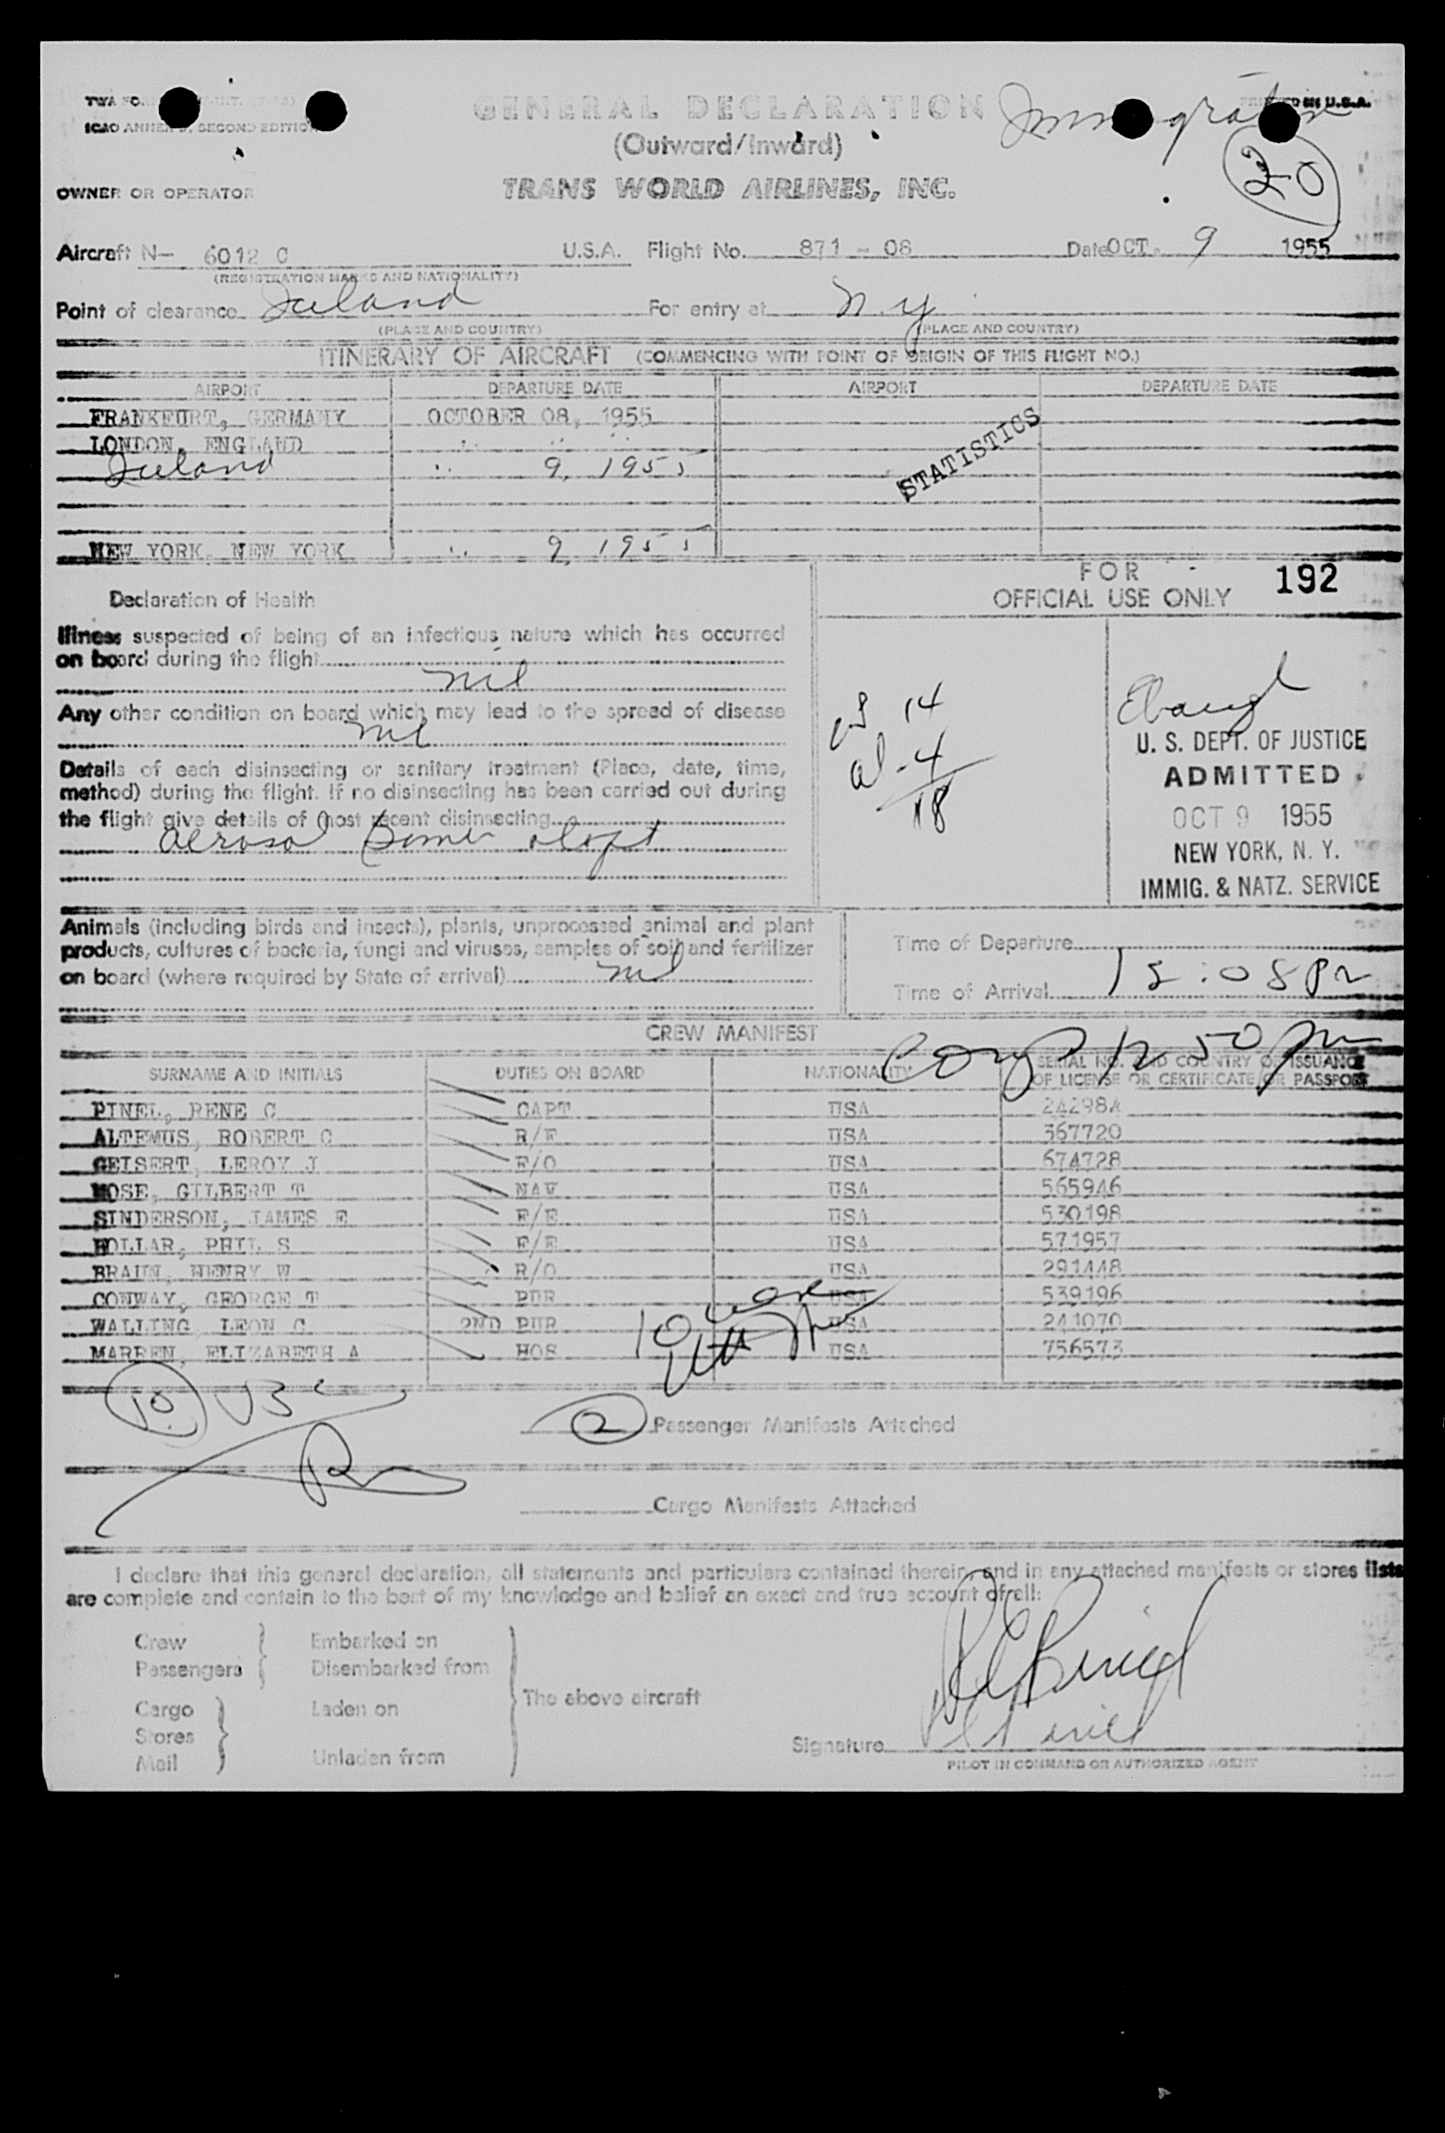 TWA FO
ICAO ANNEX 9, SECOND EDITION
GENERAL DECLARATION
(Outward/Inward)
Immigration
IN U.S.A.
20
OWNER OR OPERATOR
TRANS WORLD AIRLINES, INC.
Aircraft N- 6012 C U.S.A. Flight No. 871 - 08 Date OCT. 9 1955
(REGISTRATION MARKS AND NATIONALITY)
Point of clearance Iceland For entry at N.Y.
(PLACE AND COUNTRY) (PLACE AND COUNTRY)
ITINERARY OF AIRCRAFT (COMMENCING WITH POINT OF ORIGIN OF THIS FLIGHT NO.)
AIRPORT DEPARTURE DATE AIRPORT DEPARTURE DATE
FRANKFURT, GERMANY OCTOBER 08, 1955
LONDON, ENGLAND " " "
Iceland " 9, 1955
STATISTICS
NEW YORK, NEW YORK " 9, 1955
FOR
OFFICIAL USE ONLY 192
Declaration of Health
Illness suspected of being of an infectious nature which has occurred
on board during the flight
nil
Any other condition on board which may lead to the spread of disease
nil
Details of each disinsecting or sanitary treatment (Place, date, time,
method) during the flight. If no disinsecting has been carried out during
the flight give details of most recent disinsecting
aerosol
14
al - 4
18
U. S. DEPT. OF JUSTICE
ADMITTED
OCT 9 1955
NEW YORK, N. Y.
IMMIG. & NATZ. SERVICE
Animals (including birds and insects), plants, unprocessed animal and plant
products, cultures of bacteria, fungi and viruses, samples of soil and fertilizer
on board (where required by State of arrival)
nil
Time of Departure
Time of Arrival
CREW MANIFEST
1250 pm
SURNAME AND INITIALS DUTIES ON BOARD NATIONALITY SERIAL NO. AND COUNTRY OF ISSUANCE
OF LICENSE OR CERTIFICATE OR PASSPORT
PINEL, RENE C CAPT USA 242984
ALTEMUS, ROBERT C R/F USA 367720
GEISERT, LEROY J F/O USA 674728
MOSE, GILBERT T NAV USA 565946
SINDERSON, JAMES E F/E USA 530198
HOLLAR, PHIL S F/E USA 571957
BRAUN, HENRY W R/O USA 291448
CONWAY, GEORGE T PUR USA 539196
WALLING, LEON C 2ND PUR USA 241070
MARREN, ELIZABETH A HOS USA 756573
10
10
2 Passenger Manifests Attached
Cargo Manifests Attached
I declare that this general declaration, all statements and particulars contained therein, and in any attached manifests or stores lists
are complete and contain to the best of my knowledge and belief an exact and true account of all:
Crew Embarked on
Passengers Disembarked from
The above aircraft
Cargo Laden on
Stores
Mail Unladen from
Signature
PILOT IN COMMAND OR AUTHORIZED AGENT